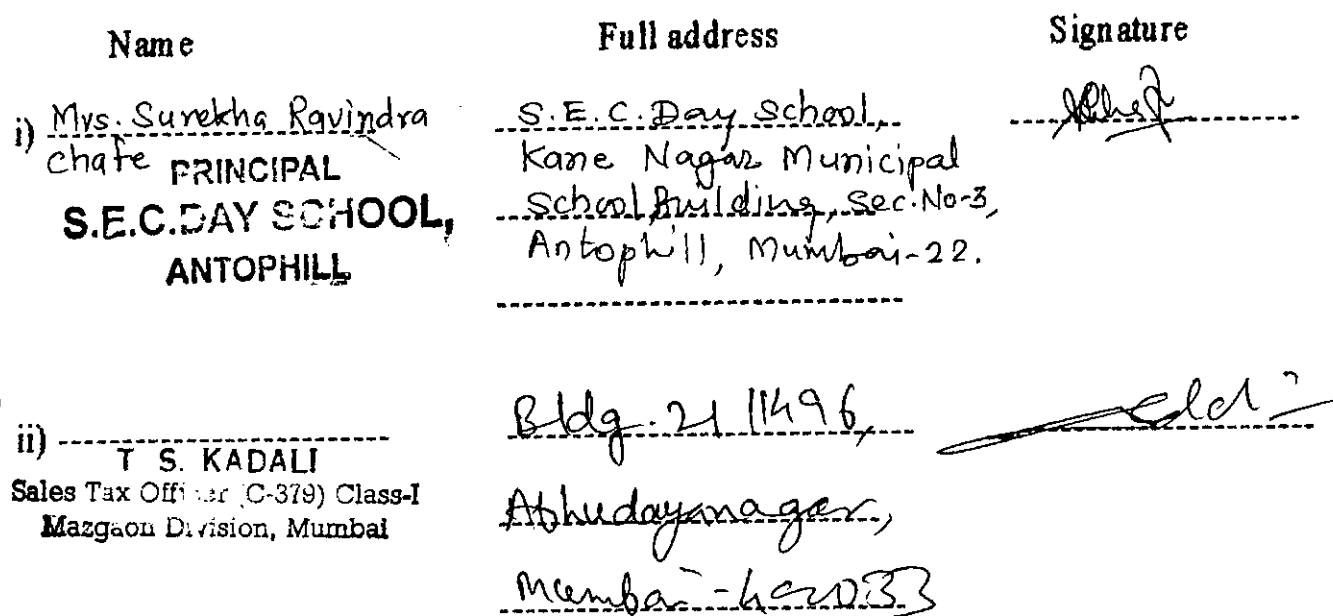 Name Full address Signature
i) Mrs. Surekha Ravindra
chafe
PRINCIPAL
S.E.C.DAY SCHOOL,
ANTOPHILL
S.E.C. Day School,
Kane Nagar Municipal
School Building, Sec.No-3,
Antophill, Mumbai-22.
ii)
T S. KADALI
Sales Tax Officer (C-379) Class-I
Mazgaon Division, Mumbai
Bldg. 21
Abhudayanagar,
Mumbai-